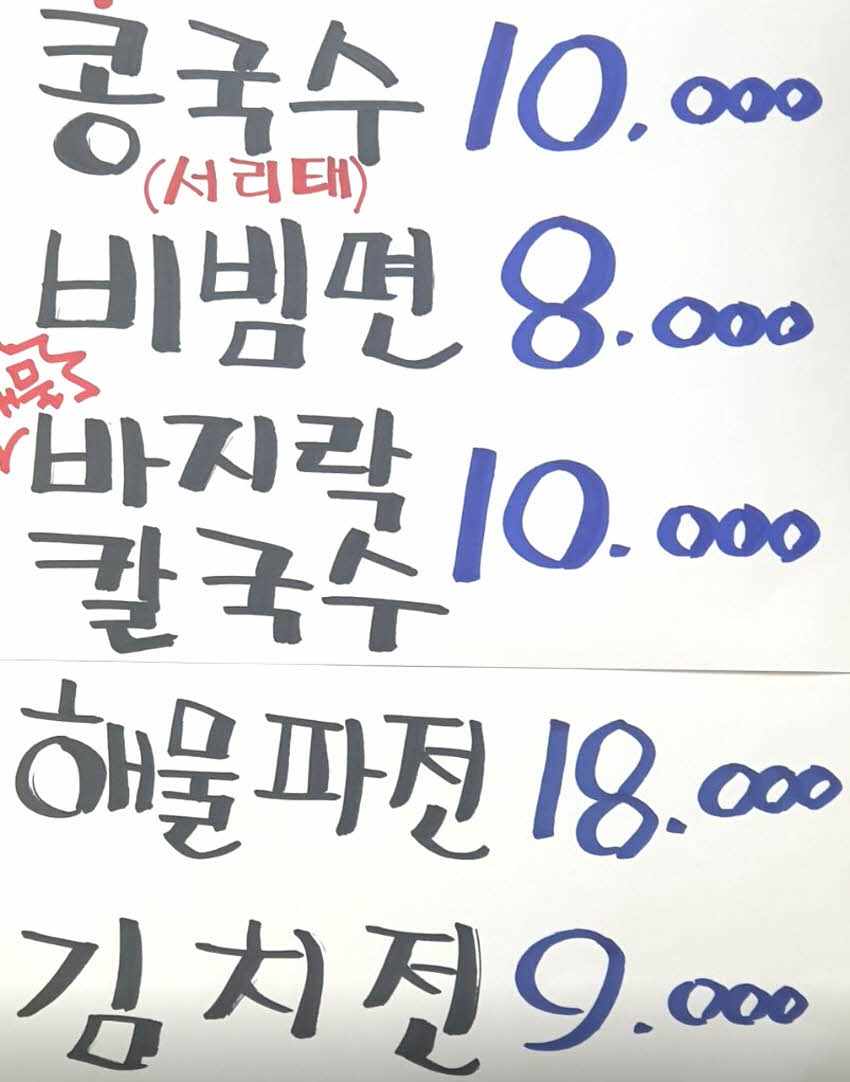 콩국수 10.000
(서리태)
비빔면 8.000
바지락
칼국수 10.000
해물파전 18.000
김치전 9.000